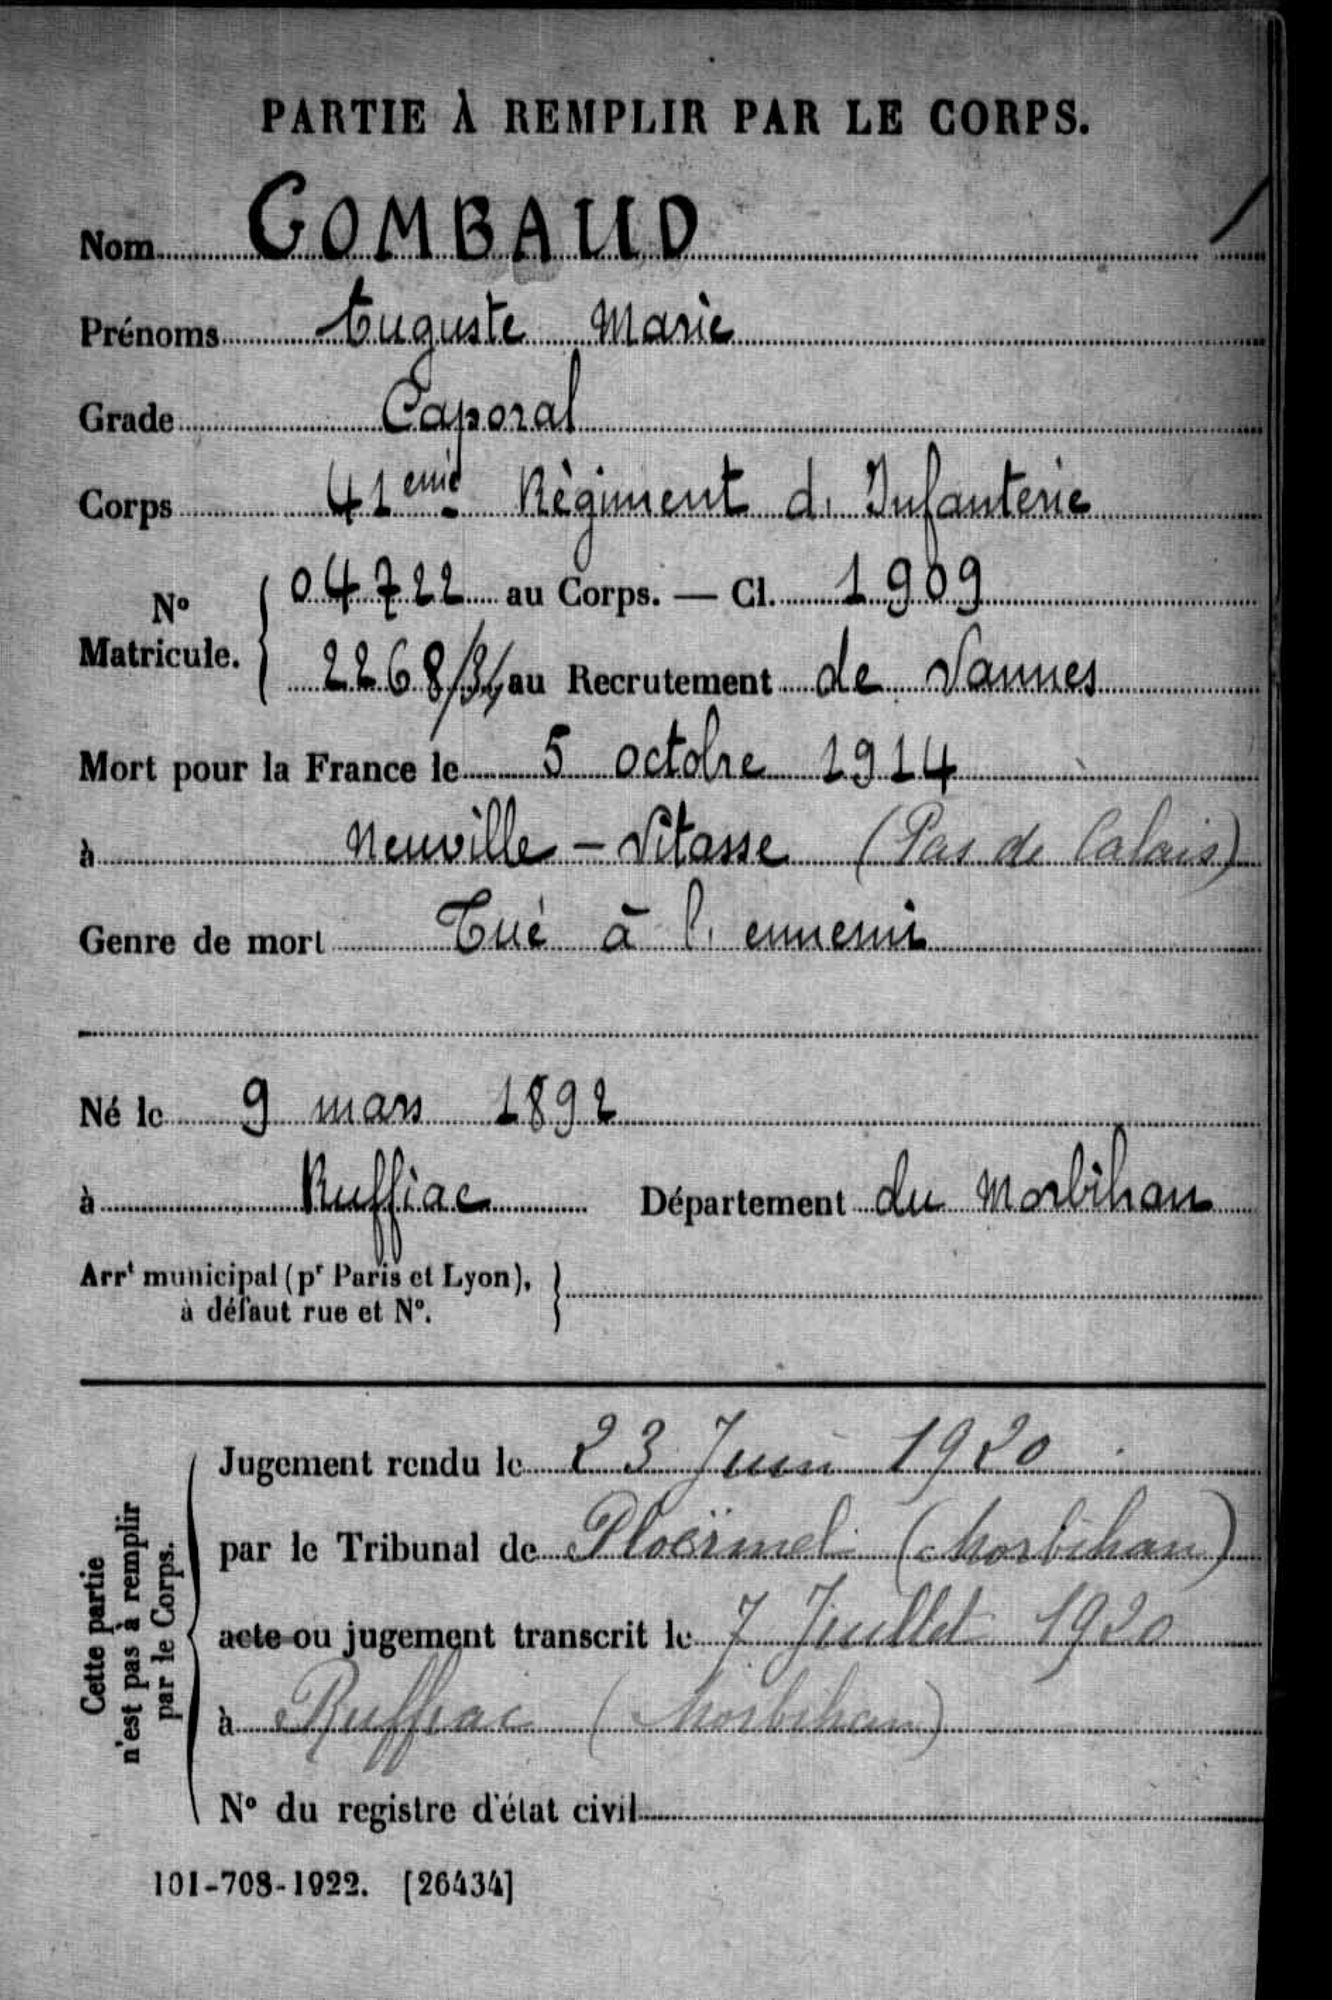 PARTIE À REMPLIR PAR LE CORPS.
Nom GOMBAUD
Prénoms Auguste Marie
Grade Caporal
Corps 41eme Règiment d. Infanterie
N° Matricule. 04722 au Corps. — Cl. 1909
2268/34 au Recrutement de Vannes
Mort pour la France le 5 octobre 1914
à Neuville - Vitasse (Pas de Calais)
Genre de mort Tué à l. ennemi
Né le 9 mars 1892
à Ruffiac Département du Morbihan
Arrt municipal (pr Paris et Lyon),
à défaut rue et N°.
Cette partie
n'est pas à remplir
par le Corps.
Jugement rendu le 23 Juin 1920
par le Tribunal de Ploërmel (Morbihan)
acte ou jugement transcrit le 7 Juillet 1920
à Ruffiac (Morbihan)
N° du registre d'état civil
101-708-1922. [26434]